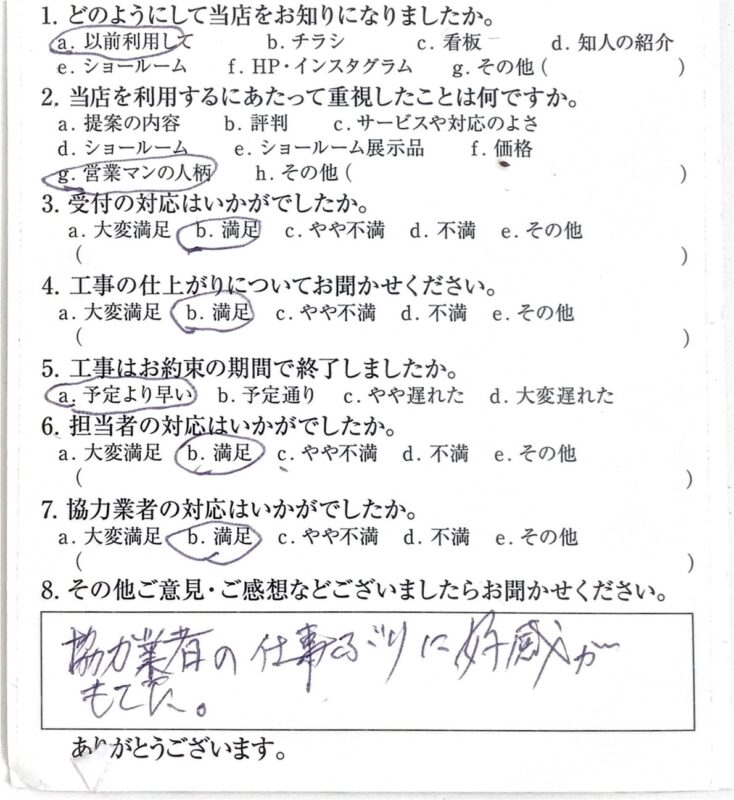 1. どのようにして当店をお知りになりましたか。
a. 以前利用して b. チラシ c. 看板 d. 知人の紹介
e. ショールーム f. HP・インスタグラム g. その他 ( )
2. 当店を利用するにあたって重視したことは何ですか。
a. 提案の内容 b. 評判 c. サービスや対応のよさ
d. ショールーム e. ショールーム展示品 f. 価格
g. 営業マンの人柄 h. その他 ( )
3. 受付の対応はいかがでしたか。
a. 大変満足 b. 満足 c. やや不満 d. 不満 e. その他
( )
4. 工事の仕上がりについてお聞かせください。
a. 大変満足 b. 満足 c. やや不満 d. 不満 e. その他
( )
5. 工事はお約束の期間で終了しましたか。
a. 予定より早い b. 予定通り c. やや遅れた d. 大変遅れた
6. 担当者の対応はいかがでしたか。
a. 大変満足 b. 満足 c. やや不満 d. 不満 e. その他
( )
7. 協力業者の対応はいかがでしたか。
a. 大変満足 b. 満足 c. やや不満 d. 不満 e. その他
( )
8. その他ご意見・ご感想などございましたらお聞かせください。
協力業者の仕事ぶりに好感が
もてた。
ありがとうございます。